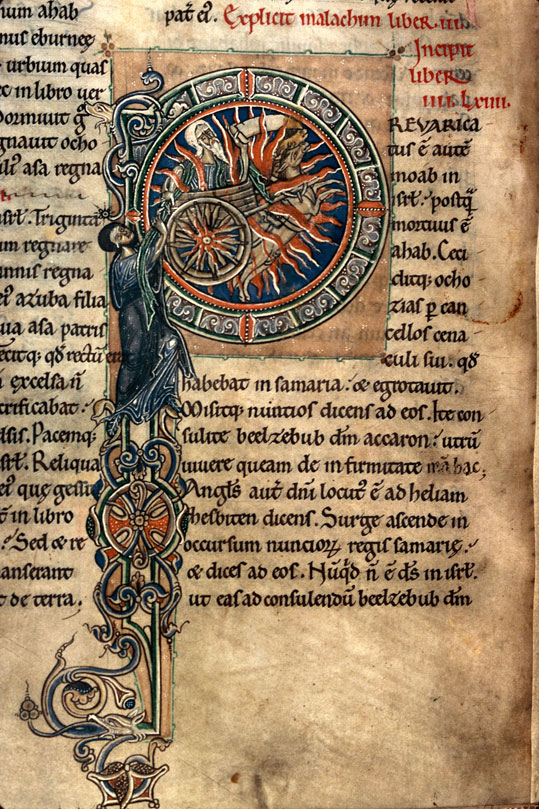 ium ahab
mus eburneę
urbium quas
ec in libro uer
Dormiuit g̃
gnauit ocho
ili' asa regna
isrł. Triginta
um regnare
mnis regna
ei' azuba filia
ua asa patris
fecitq; qđ rectū erat
excelsa ñ
crificabat.
Pacemq;
isrł. Reliqua
ei' que gessit
ē in libro
Sed & re
manserant
de terra.
pat ei'. Explicit malachim liber .iii.
Incipit
liber
.IIII.
REVARICA
tus ē autē
moab in
isrł. postq̃
mortuus ē
ahab. Ceci
ditq; ocho
zias p can
cellos cena
culi sui. qđ
habebat in samaria. & egrotauit.
Misitq; nuntios dicens ad eos. Ite con
sulite beelzebub dm̄ accaron. utrū
uiuere queam de infirmitate mā hac;
Angls̃ autē dñi locut' ē ad heliam
thesbiten dicens. Surge ascende in
occursum nuncioꝝ regis samarię.
& dices ad eos. Nūqđ ñ ē d̄s in isrł.
ut eas ad consulendū beelzebub dm̄